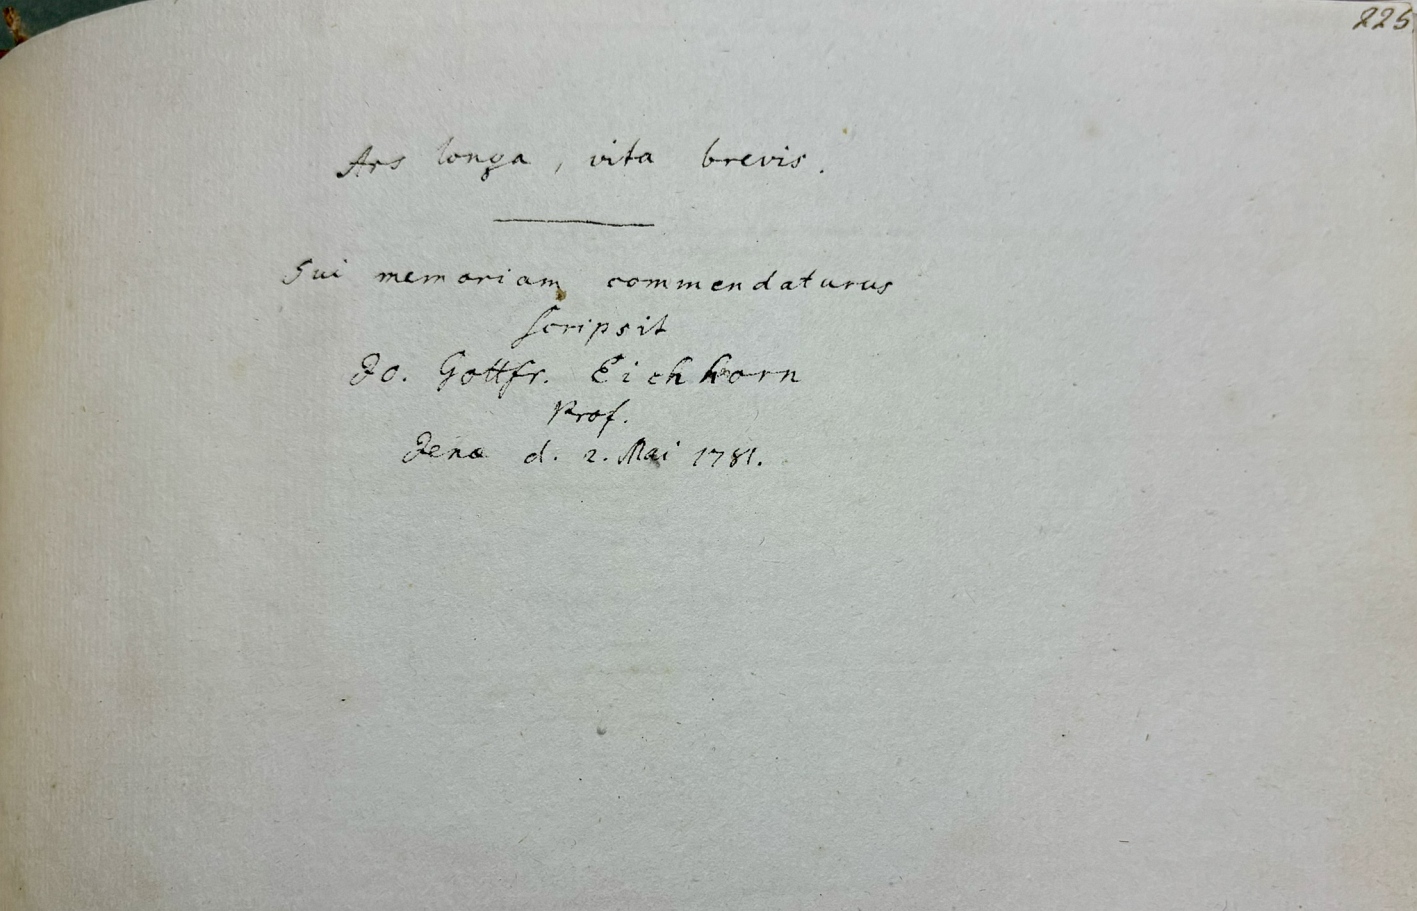 225
Ars longa, vita brevis.
Sui memoriam commendaturus
scripsit
Jo. Gottfr. Eichhorn
Prof.
Jenæ d. 2. Mai 1781.